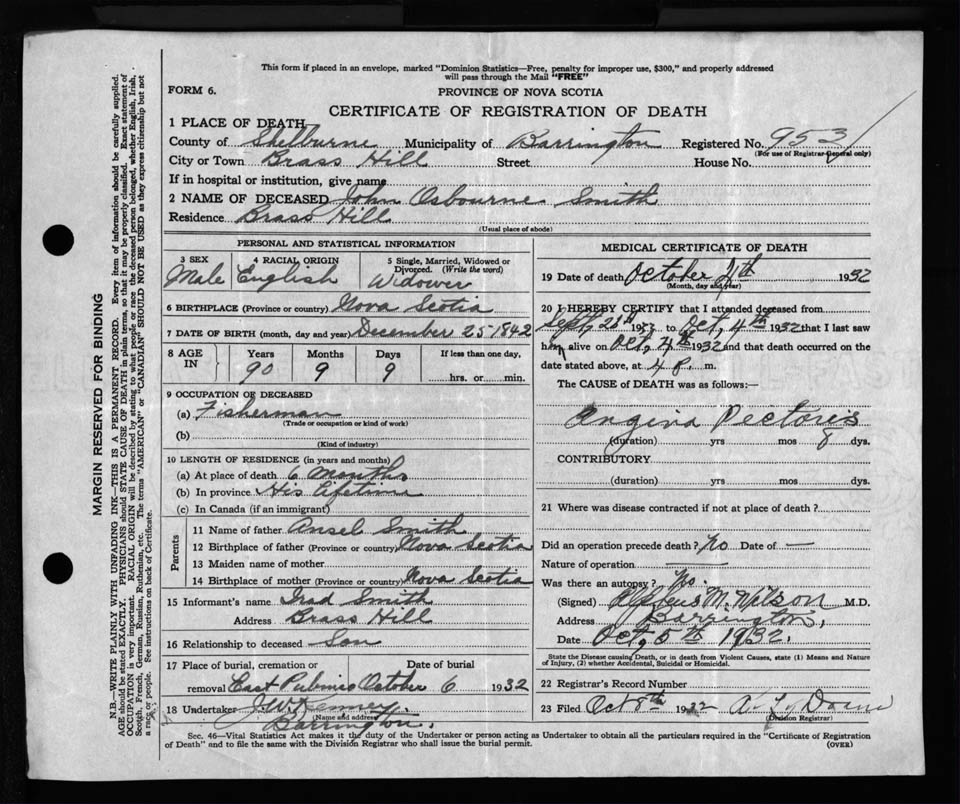 This form if placed in an envelope, marked "Dominion Statistics—Free, penalty for improper use, $300," and properly addressed
will pass through the Mail "FREE"
FORM 6.
PROVINCE OF NOVA SCOTIA
CERTIFICATE OF REGISTRATION OF DEATH
1 PLACE OF DEATH
County of Shelburne Municipality of Barrington Registered No. 953
(For use of Registrar-General only)
City or Town Brass Hill Street House No.
If in hospital or institution, give name
2 NAME OF DECEASED John Osbourne Smith
Residence Brass Hill
(Usual place of abode)
PERSONAL AND STATISTICAL INFORMATION
3 SEX 4 RACIAL ORIGIN 5 Single, Married, Widowed or
Divorced. (Write the word)
Male English Widower
6 BIRTHPLACE (Province or country) Nova Scotia
7 DATE OF BIRTH (month, day and year) December 25 1842
8 AGE IN Years Months Days If less than one day,
90 9 9 hrs. or min.
9 OCCUPATION OF DECEASED
(a) Fisherman
(Trade or occupation or kind of work)
(b)
(Kind of industry)
10 LENGTH OF RESIDENCE (in years and months)
(a) At place of death 6 Months
(b) In province His lifetime
(c) In Canada (if an immigrant)
Parents
11 Name of father Ansel Smith
12 Birthplace of father (Province or country) Nova Scotia
13 Maiden name of mother
14 Birthplace of mother (Province or country) Nova Scotia
15 Informant's name Smith
Address Brass Hill
16 Relationship to deceased Son
17 Place of burial, cremation or Date of burial
removal East Pubnico October 6 1932
18 Undertaker J.W. Kenney
(Name and address)
Barrington.
MEDICAL CERTIFICATE OF DEATH
19 Date of death October 4th 1932
(Month, day and year)
20 I HEREBY CERTIFY that I attended deceased from
Sept, 19 to Oct, 4th 1932 that I last saw
him alive on Oct, 4th 1932 and that death occurred on the
date stated above, at 4 P. m.
The CAUSE of DEATH was as follows:—
Angina Pectoris
(duration) yrs mos 8 dys.
CONTRIBUTORY
(duration) yrs mos dys.
21 Where was disease contracted if not at place of death?
Did an operation precede death? No Date of —
Nature of operation —
Was there an autopsy? No.
(Signed) M. Wilson M.D.
Address Barrington,
Date Oct, 5th 1932.
State the Disease causing Death, or in death from Violent Causes, state (1) Means and Nature
of Injury, (2) whether Accidental, Suicidal or Homicidal.
22 Registrar's Record Number
23 Filed Oct 8th 1932
(Division Registrar)
Sec. 46—Vital Statistics Act makes it the duty of the Undertaker or person acting as Undertaker to obtain all the particulars required in the "Certificate of Registration
of Death" and to file the same with the Division Registrar who shall issue the burial permit.
(OVER)
MARGIN RESERVED FOR BINDING
N.B.—WRITE PLAINLY WITH UNFADING INK—THIS IS A PERMANENT RECORD. Every item of information should be carefully supplied.
AGE should be stated EXACTLY. PHYSICIANS should STATE CAUSE OF DEATH in plain terms, so that it may be properly classified. Exact statement of
OCCUPATION is very important. RACIAL ORIGIN will be described by stating to what people or race the deceased person belonged, whether English, Irish,
Scotch, French, German, Russian, Ruthenian, etc. The terms "AMERICAN" or "CANADIAN" SHOULD NOT BE USED as they express citizenship but not
a race or people. See instructions on back of Certificate.